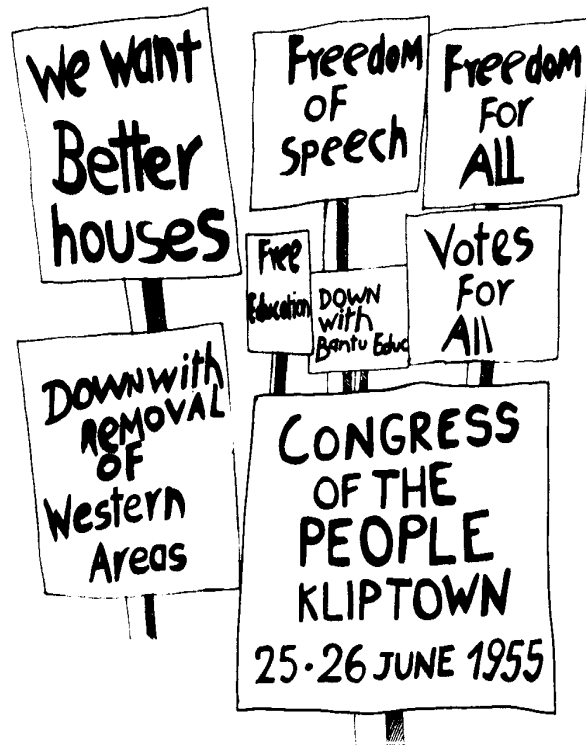 We want
Better
houses
Freedom
OF
Speech
Freedom
For
ALL
Free
Education
DOWN
with
Bantu Educ
Votes
For
All
DOWN with
REMOVAL
OF
Western
Areas
CONGRESS
OF THE
PEOPLE
KLIPTOWN
25-26 JUNE 1955